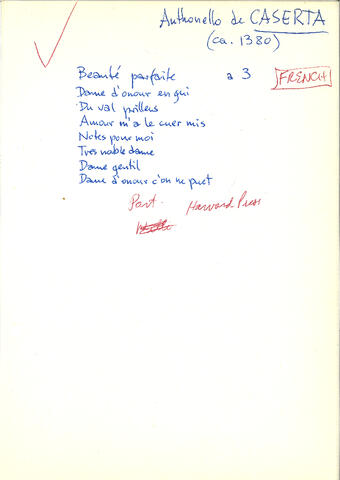 Anthonello de CASERTA
(ca. 1380)
Beauté parfaite a 3 FRENCH
Dame d'onour en qui
Du val prilleus
Amour m'a le cuer mis
Notes pour moi
Tres nable dame
Dame gentil
Dame d'onour c'on ne puet
Part. Harvard Press